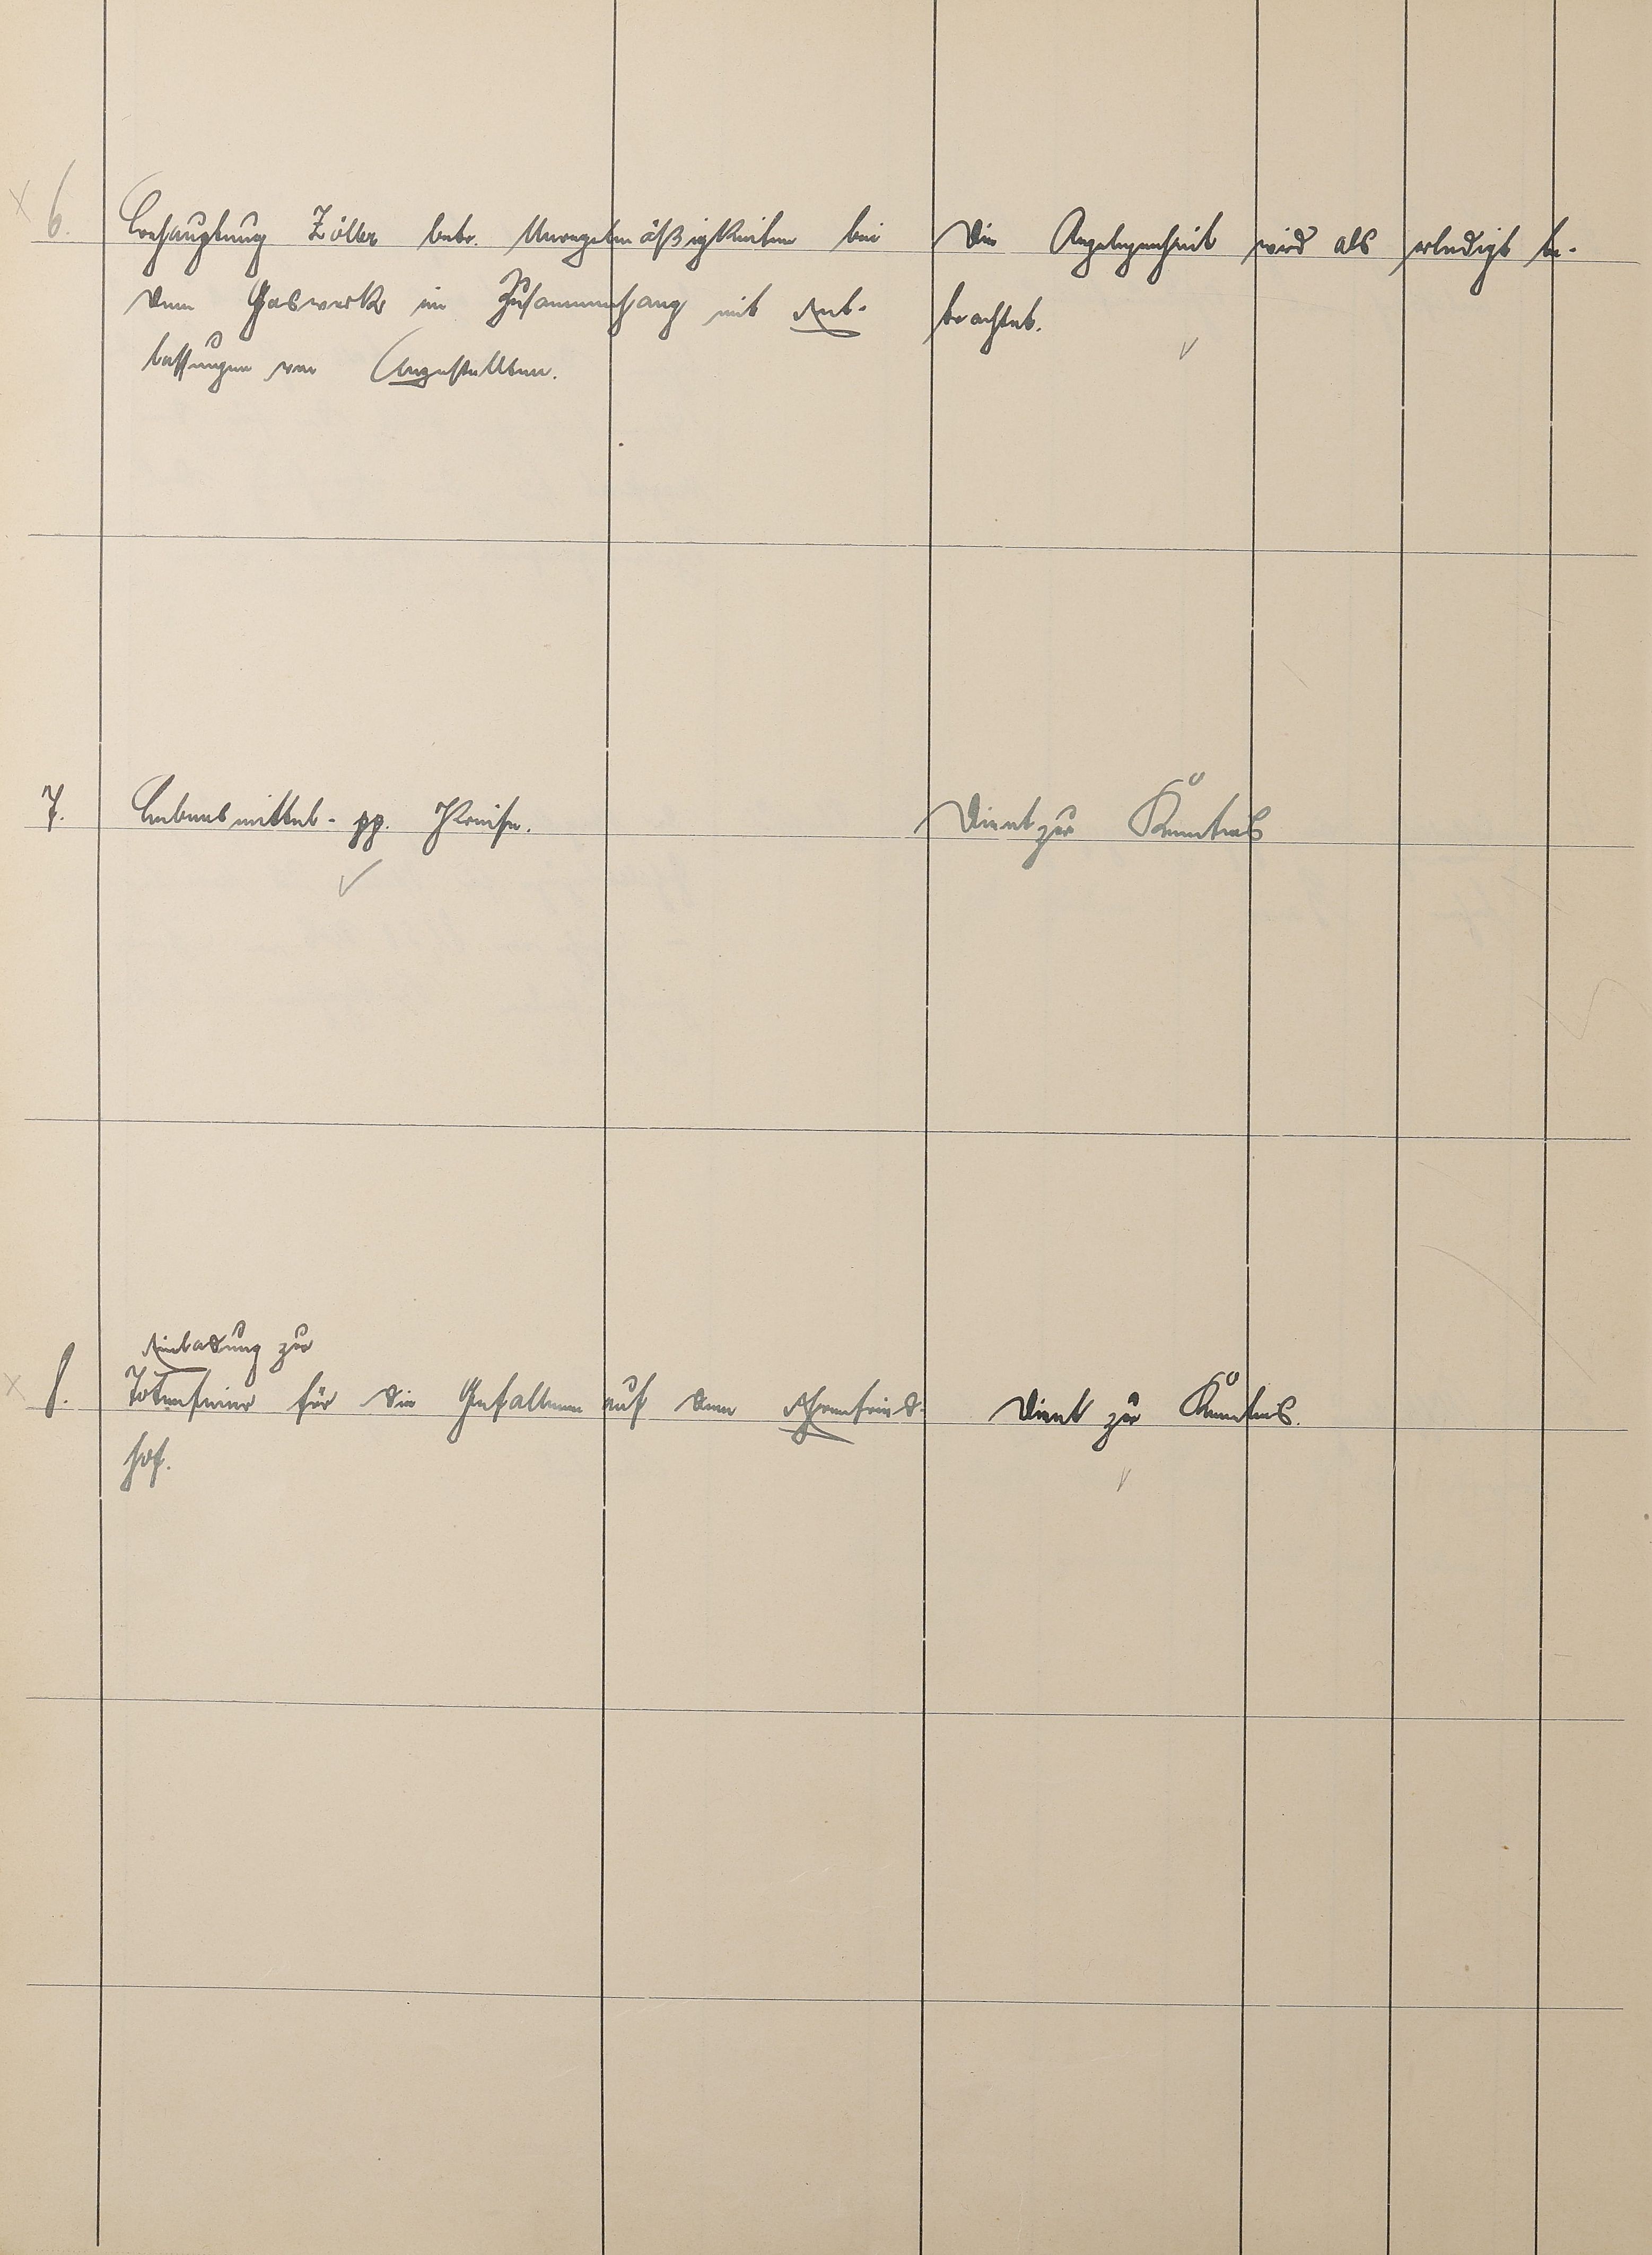 6. Behauptung Zöller betr. Unregelmäßigkeiten bei
dem Gaswerk im Zusammenhang mit Ent-
lassungen von Angestellten.
Die Angelegenheit wird als erledigt be-
trachtet.
7. Lebensmittel- pp. Preise.
Dient zur Kenntnis
Einladung zur
8. Totenfeier für die Gefallenen auf dem Ehrenfried-
hof.
Dient zur Kenntnis.